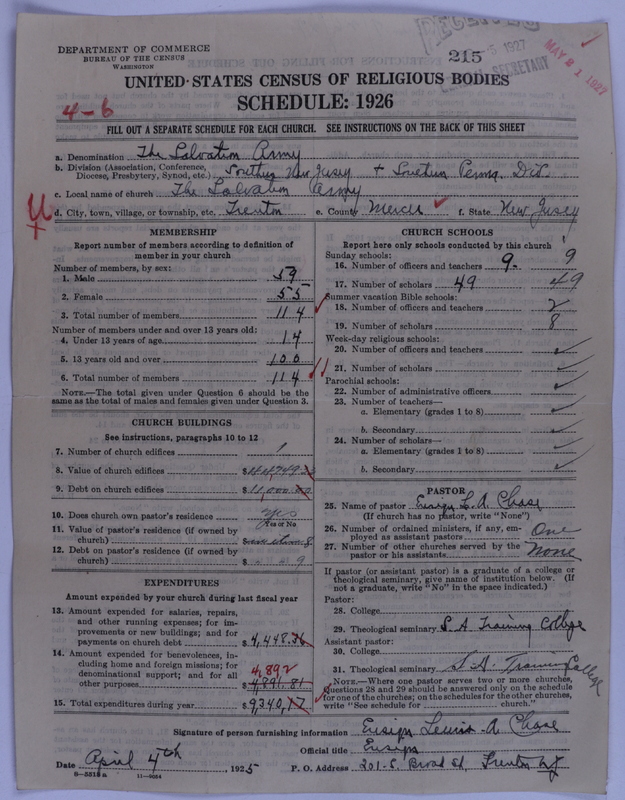 DEPARTMENT OF COMMERCE
BUREAU OF THE CENSUS
WASHINGTON
RECEIVED
5 1927
SECRETARY
215
MAY 21 1927
UNITED STATES CENSUS OF RELIGIOUS BODIES
SCHEDULE: 1926
4-6
FILL OUT A SEPARATE SCHEDULE FOR EACH CHURCH. SEE INSTRUCTIONS ON THE BACK OF THIS SHEET
a. Denomination The Salvation Army
b. Division (Association, Conference, Diocese, Presbytery, Synod, etc.) Southern New Jersey + Eastern Penna. Div.
c. Local name of church The Salvation Army
d. City, town, village, or township, etc. Trenton e. County Mercer f. State New Jersey
MEMBERSHIP
Report number of members according to definition of
member in your church
Number of members, by sex:
1. Male 59
2. Female 55
3. Total number of members 114
Number of members under and over 13 years old:
4. Under 13 years of age 14
5. 13 years old and over 100
6. Total number of members 114
NOTE.—The total given under Question 6 should be the
same as the total of males and females given under Question 3.
CHURCH BUILDINGS
See instructions, paragraphs 10 to 12
7. Number of church edifices 1
8. Value of church edifices $
9. Debt on church edifices $ 11,000
10. Does church own pastor's residence yes
Yes or No
11. Value of pastor's residence (if owned by
church) $
12. Debt on pastor's residence (if owned by
church) $ 9
EXPENDITURES
Amount expended by your church during last fiscal year
13. Amount expended for salaries, repairs,
and other running expenses; for im-
provements or new buildings; and for
payments on church debt $ 4,448.36
14. Amount expended for benevolences, in-
cluding home and foreign missions; for
denominational support; and for all
other purposes 4,892
$ 4,891.81
15. Total expenditures during year $ 9,340.17
CHURCH SCHOOLS
Report here only schools conducted by this church
Sunday schools:
16. Number of officers and teachers 9 9
17. Number of scholars 49 49
Summer vacation Bible schools:
18. Number of officers and teachers 2
19. Number of scholars 8
Week-day religious schools:
20. Number of officers and teachers
21. Number of scholars
Parochial schools:
22. Number of administrative officers
23. Number of teachers—
a. Elementary (grades 1 to 8)
b. Secondary
24. Number of scholars—
a. Elementary (grades 1 to 8)
b. Secondary
PASTOR
25. Name of pastor Ensign L. A. Chase
(If church has no pastor, write "None")
26. Number of ordained ministers, if any, em-
ployed as assistant pastors One
27. Number of other churches served by the
pastor or his assistants None
If pastor (or assistant pastor) is a graduate of a college or
theological seminary, give name of institution below. (If
not a graduate, write "No" in the space indicated.)
Pastor:
28. College
29. Theological seminary S. A Training College
Assistant pastor:
30. College
31. Theological seminary S. A. Training College
NOTE.—Where one pastor serves two or more churches,
Questions 28 and 29 should be answered only on the schedule
for one of the churches; on the schedules for the other churches,
write "See schedule for church."
Signature of person furnishing information Ensign Lewis A. Chase
Official title Ensign
Date April 4th, 1925 P. O. Address 201 S. Broad St, Trenton NJ
8—3518a 11—8654